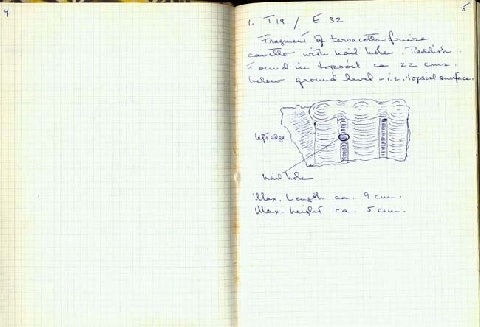 4
5
1. T18 / E 32
Fragment of terracotta frieze
cavetto with nail hole. Reddish.
Found in topsoil ca 22 cms.
below ground level - i.e. topsoil surface.
left edge
nail hole
Max. Length ca. 9 cm.
Max. height ca. 5 cm.